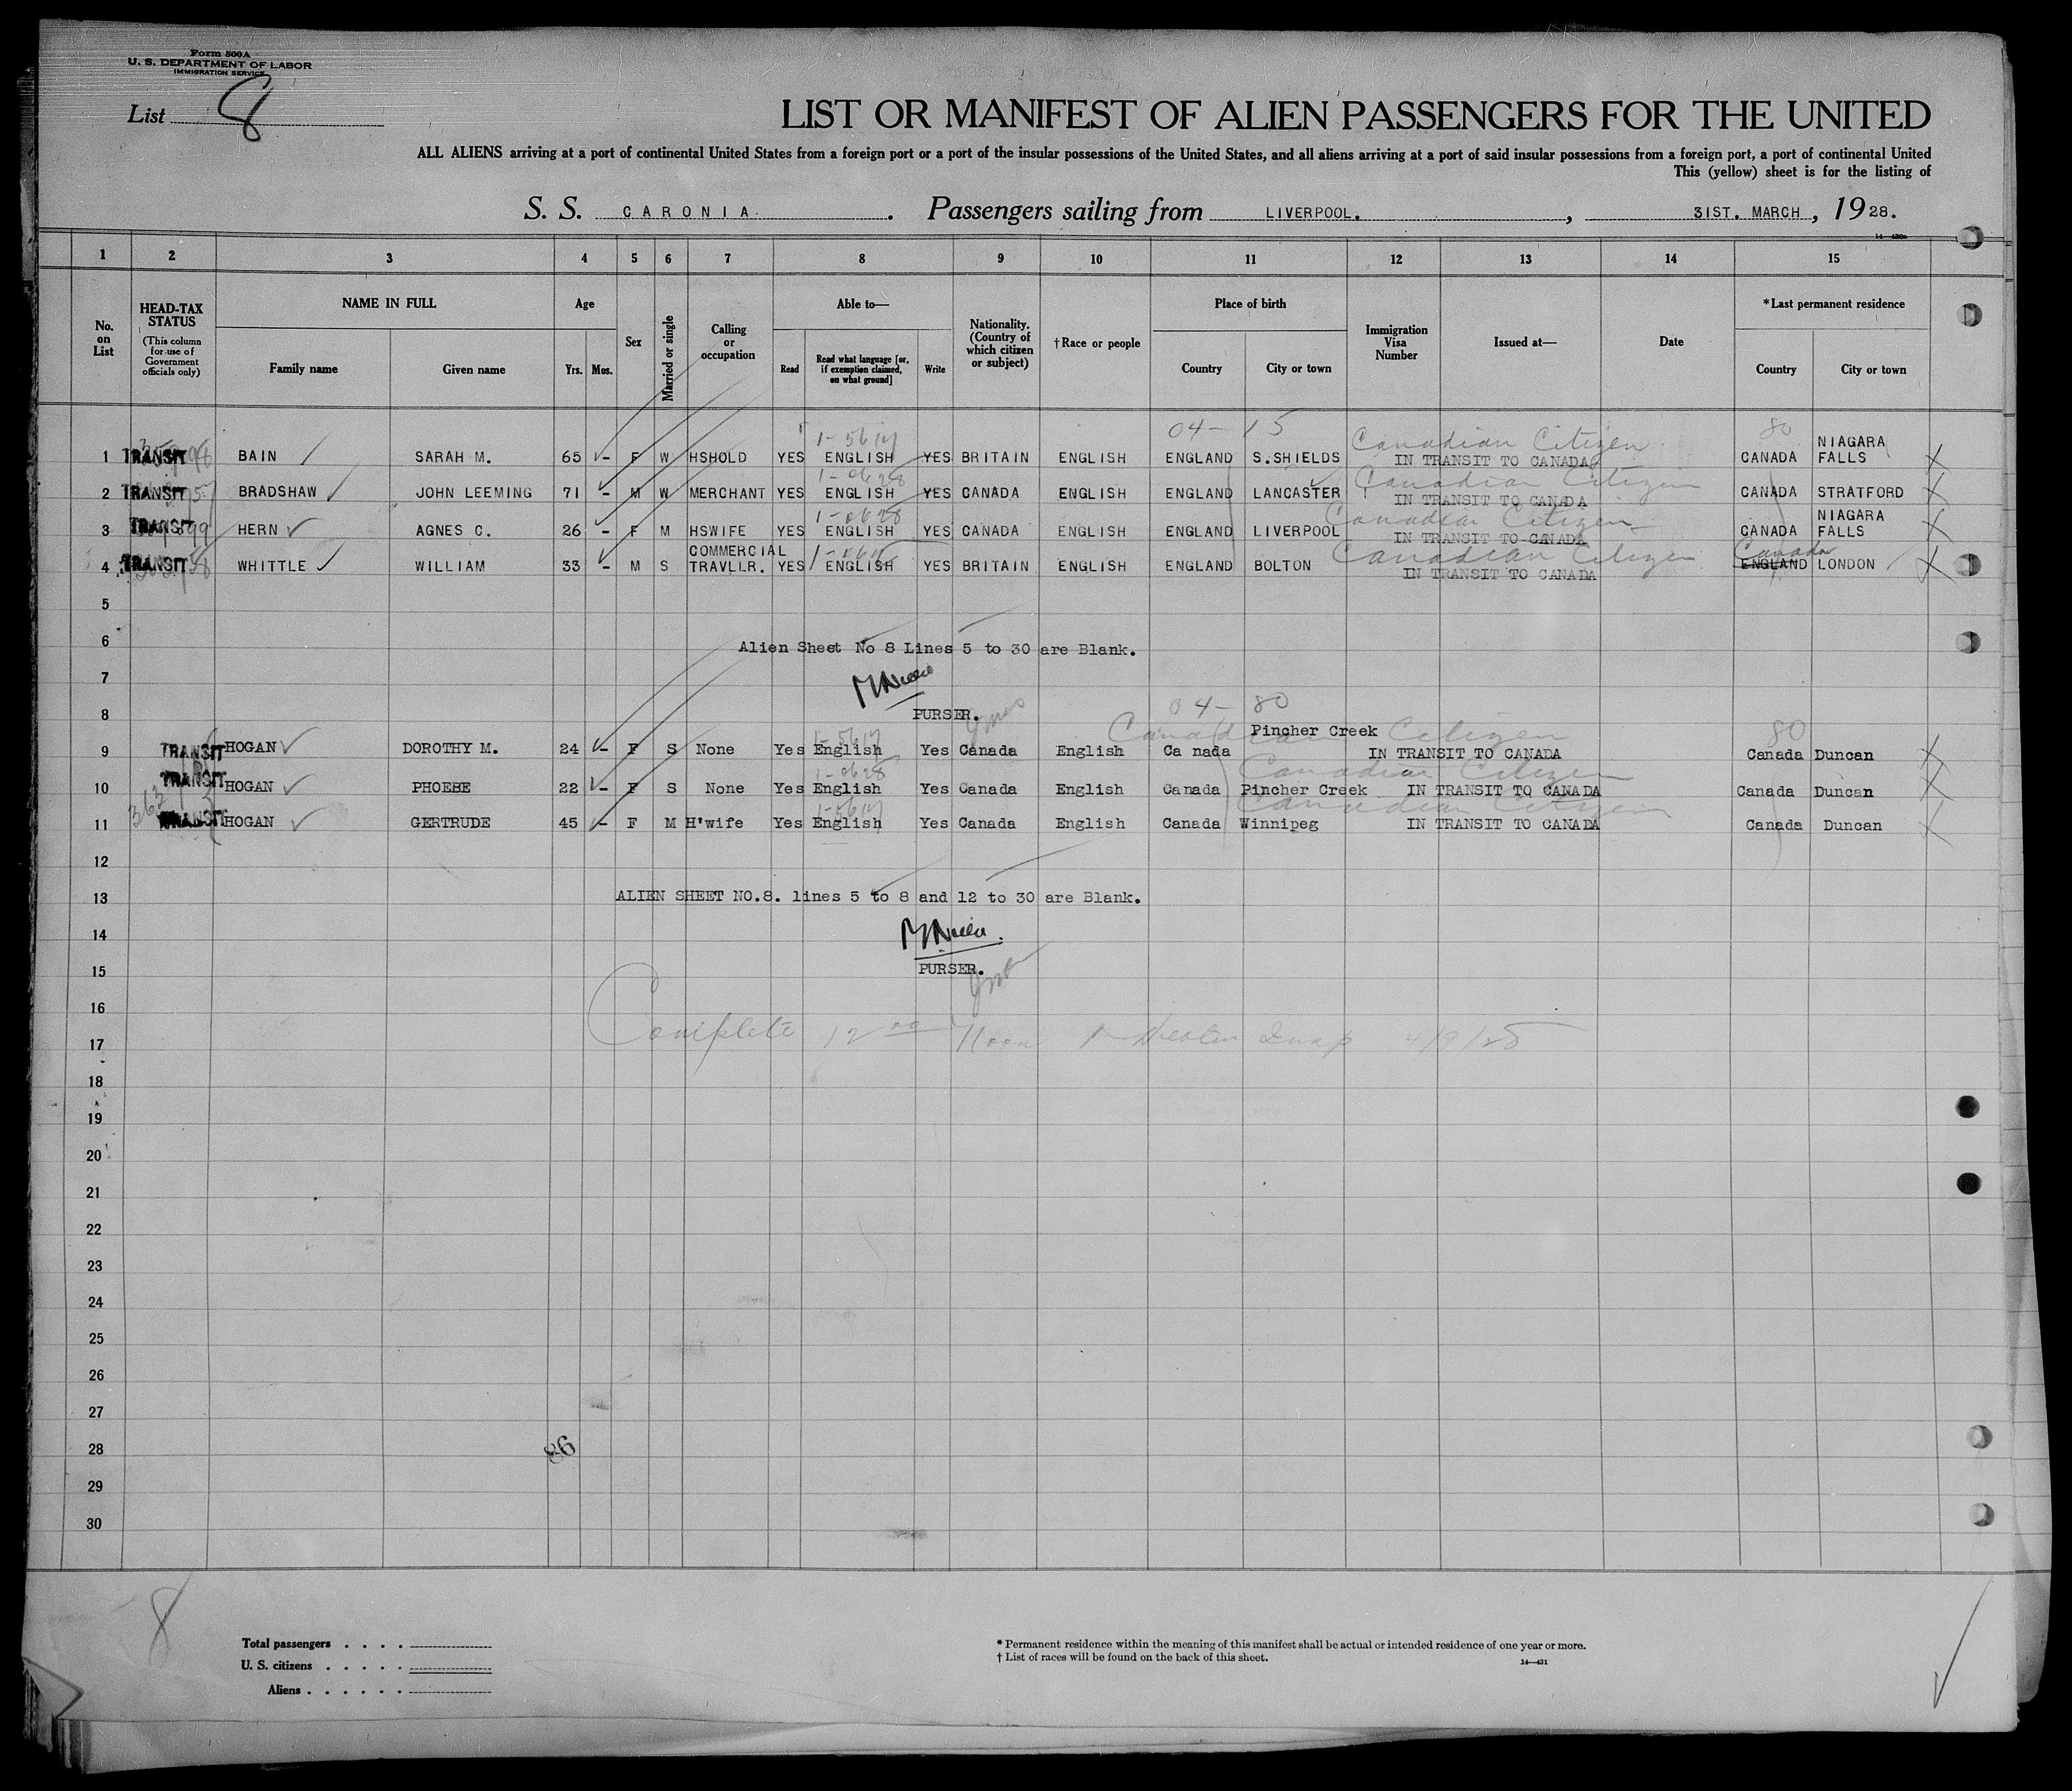 Form 500A
U. S. DEPARTMENT OF LABOR
IMMIGRATION SERVICE
List 8
LIST OR MANIFEST OF ALIEN PASSENGERS FOR THE UNITED
ALL ALIENS arriving at a port of continental United States from a foreign port or a port of the insular possessions of the United States, and all aliens arriving at a port of said insular possessions from a foreign port, a port of continental United
This (yellow) sheet is for the listing of
S. S. CARONIA. Passengers sailing from LIVERPOOL. , 31ST. MARCH , 1928.
1 2 3 4 5 6 7 8 9 10 11 12 13 14 15
No. on List
HEAD-TAX STATUS
(This column for use of Government officials only)
NAME IN FULL
Family name Given name
Age
Yrs. Mos.
Sex
Married or single
Calling or occupation
Able to—
Read Read what language [or, if exemption claimed, on what ground] Write
Nationality. (Country of which citizen or subject)
†Race or people
Place of birth
Country City or town
Immigration Visa Number
Issued at—
Date
*Last permanent residence
Country City or town
04- 15 80
1 TRANSIT BAIN SARAH M. 65 - F W HSHOLD YES ENGLISH YES BRITAIN ENGLISH ENGLAND S.SHIELDS Canadian Citizen IN TRANSIT TO CANADA CANADA NIAGARA FALLS
1-0628
2 TRANSIT BRADSHAW JOHN LEEMING 71 - M W MERCHANT YES ENGLISH YES CANADA ENGLISH ENGLAND LANCASTER Canadian Citizen IN TRANSIT TO CANADA CANADA STRATFORD
1-0628
3 TRANSIT HERN AGNES C. 26 - F M HSWIFE YES ENGLISH YES CANADA ENGLISH ENGLAND LIVERPOOL Canadian Citizen IN TRANSIT TO CANADA CANADA NIAGARA FALLS
4 TRANSIT WHITTLE WILLIAM 33 - M S COMMERCIAL TRAVLLR. YES ENGLISH YES BRITAIN ENGLISH ENGLAND BOLTON Canadian Citizen IN TRANSIT TO CANADA Canada ENGLAND LONDON
5
6 Alien Sheet No 8 Lines 5 to 30 are Blank.
7
8 PURSER.
04- 80
9 TRANSIT HOGAN DOROTHY M. 24 - F S None Yes English Yes Canada English Ca nada Pincher Creek Canadian Citizen IN TRANSIT TO CANADA 80 Canada Duncan
1-0628
10 TRANSIT HOGAN PHOEBE 22 - F S None Yes English Yes Canada English Canada Pincher Creek Canadian Citizen IN TRANSIT TO CANADA Canada Duncan
11 TRANSIT HOGAN GERTRUDE 45 - F M H'wife Yes English Yes Canada English Canada Winnipeg Canadian Citizen IN TRANSIT TO CANADA Canada Duncan
12
13 ALIEN SHEET NO.8. lines 5 to 8 and 12 to 30 are Blank.
14
15 PURSER.
16
17 Complete 12 00 Noon Insp 4/9/28
18
19
20
21
22
23
24
25
26
27
28 86
29
30
8
Total passengers . . . .
U. S. citizens . . . . .
Aliens . . . . . .
* Permanent residence within the meaning of this manifest shall be actual or intended residence of one year or more.
† List of races will be found on the back of this sheet.
14—431